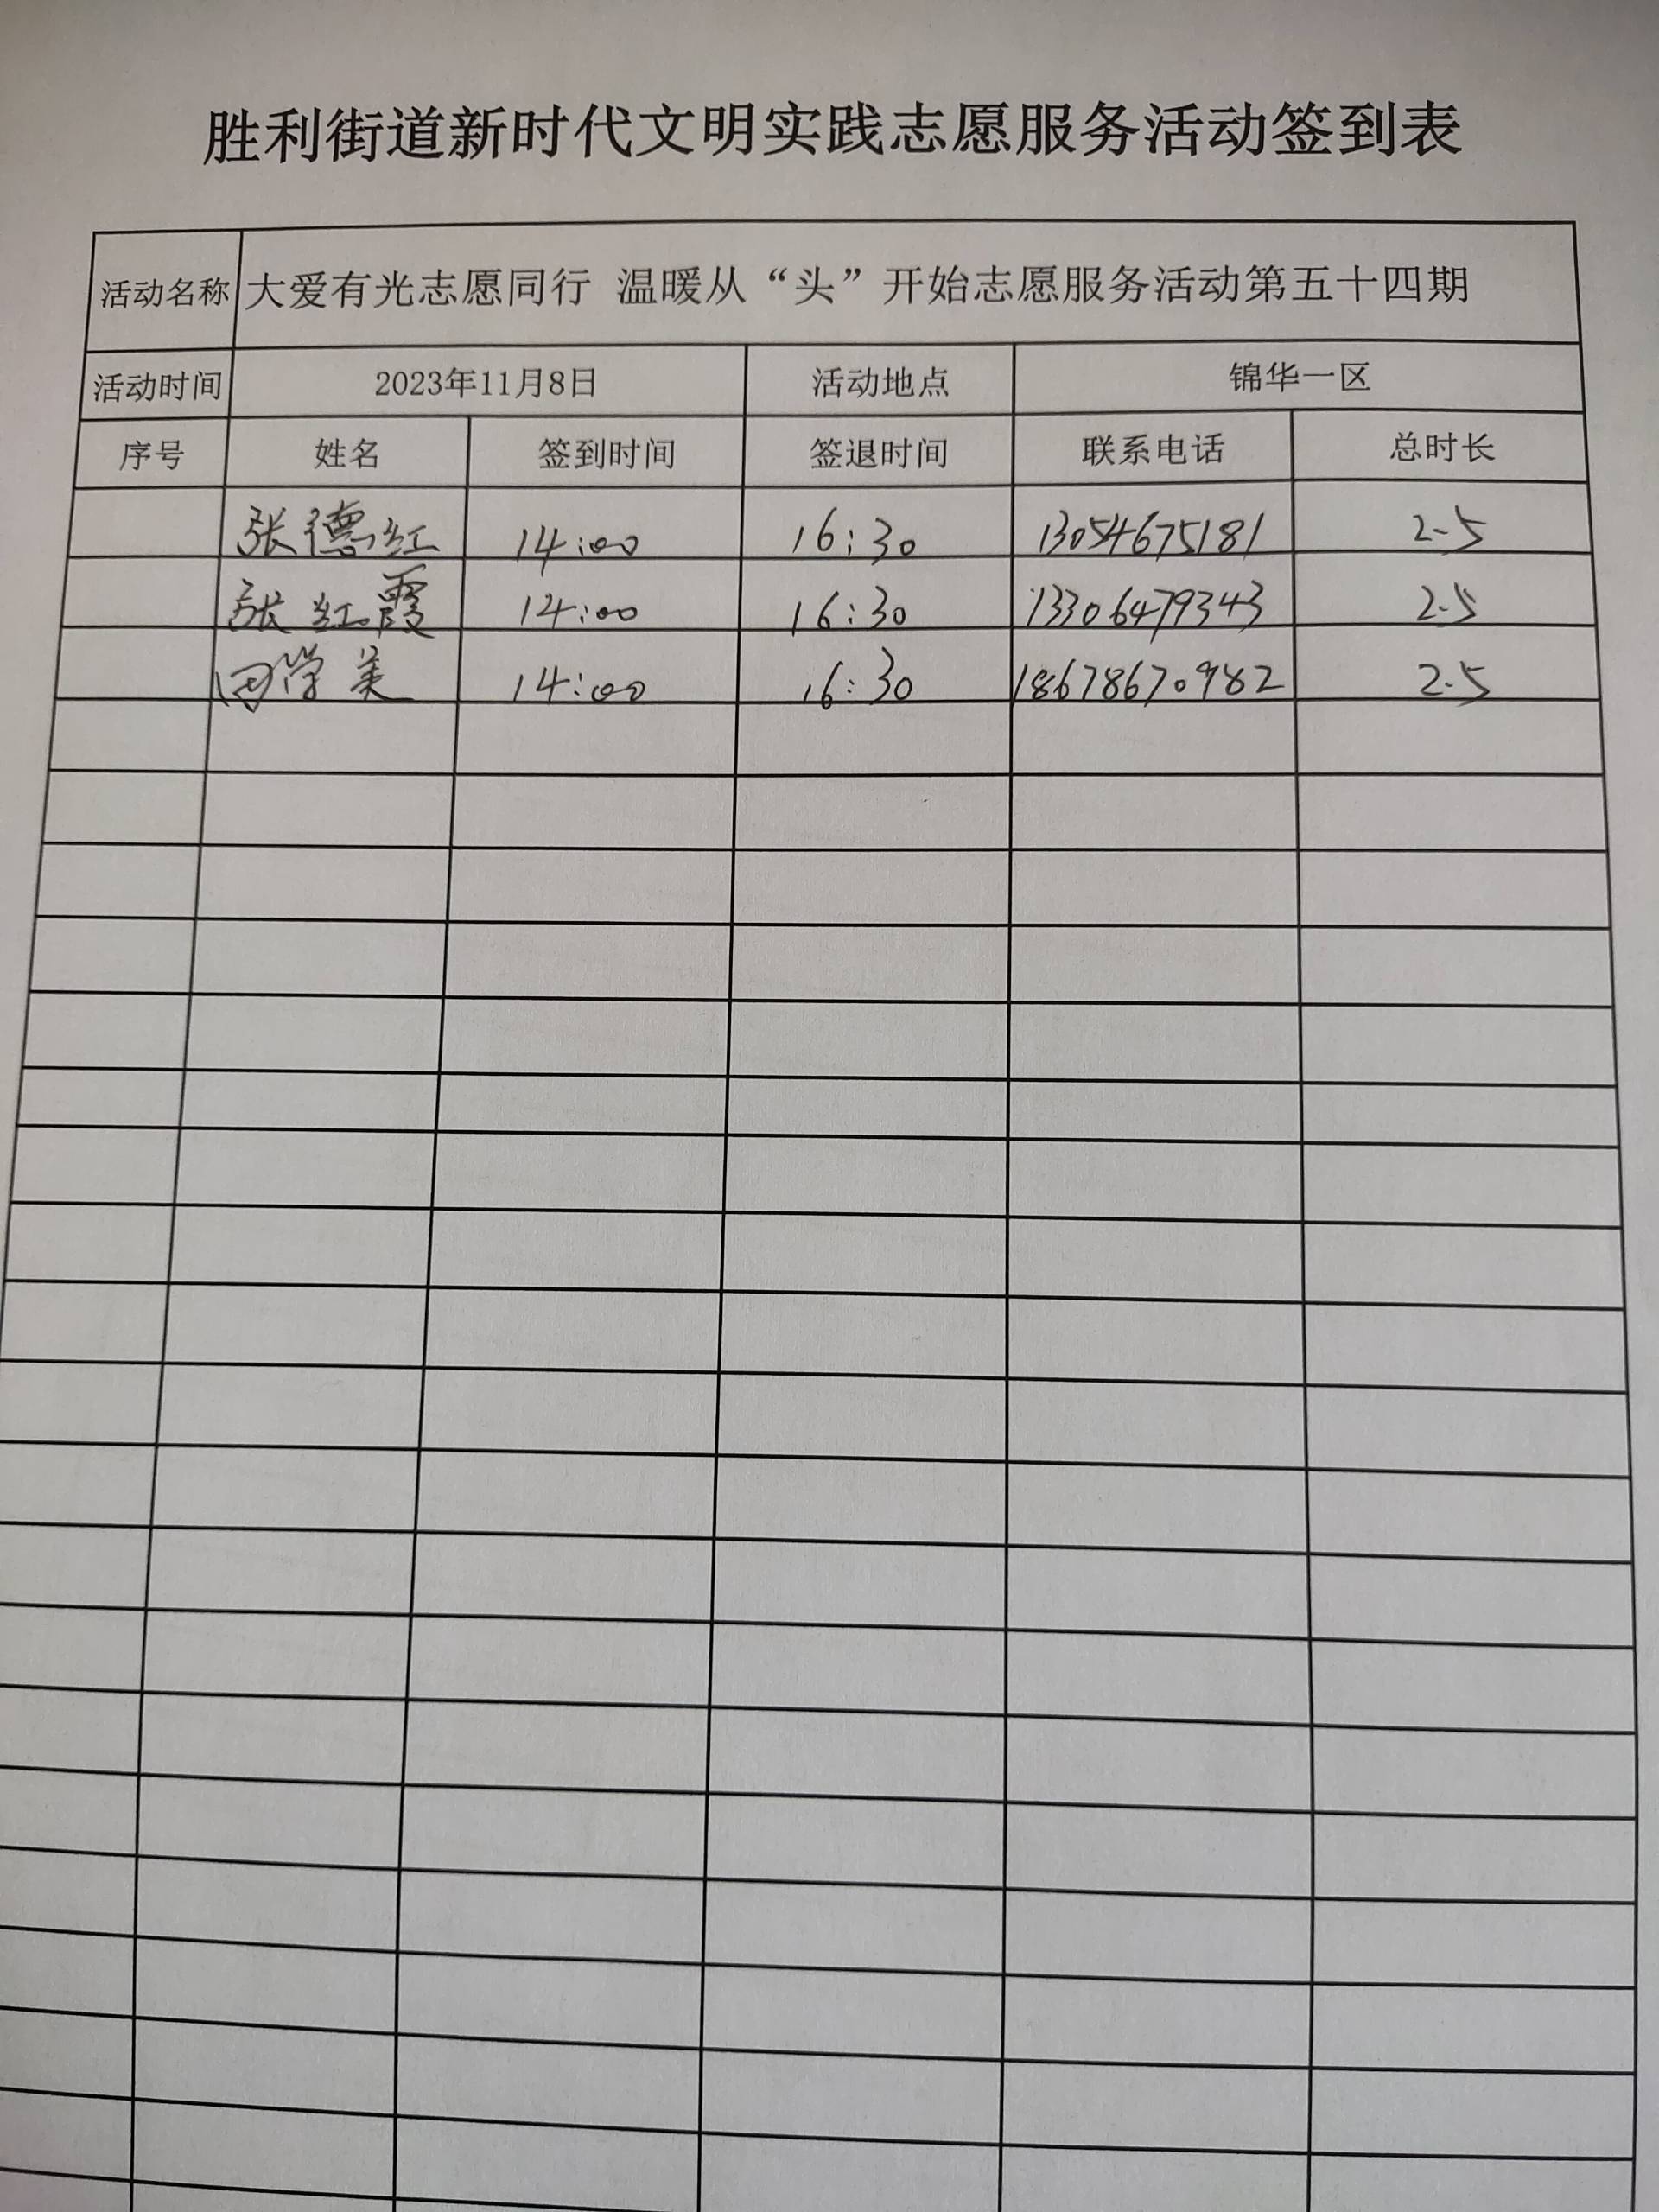 胜利街道新时代文明实践志愿服务活动签到表
活动名称 大爱有光志愿同行 温暖从“头”开始志愿服务活动第五十四期
活动时间 2023年11月8日 活动地点 锦华一区
序号 姓名 签到时间 签退时间 联系电话 总时长
张德红 14:00 16:30 13054675181 2.5
张红霞 14:00 16:30 13306479343 2.5
田学美 14:00 16:30 18678670982 2.5